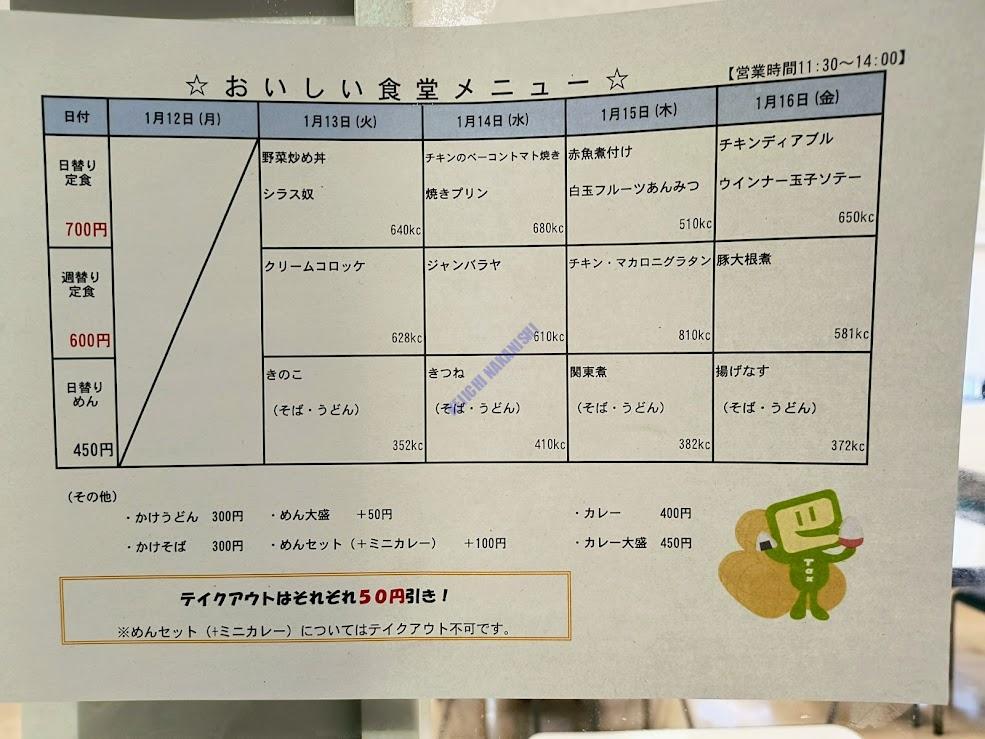 ☆おいしい食堂メニュー☆
【営業時間11:30～14:00】
日付
1月12日(月)
1月13日(火)
1月14日(水)
1月15日(木)
1月16日(金)
日替り
定食
700円
野菜炒め丼
シラス奴
640kc
チキンのベーコントマト焼き
焼きプリン
680kc
赤魚煮付け
白玉フルーツあんみつ
510kc
チキンディアブル
ウインナー玉子ソテー
650kc
週替り
定食
600円
クリームコロッケ
628kc
ジャンバラヤ
610kc
チキン・マカロニグラタン
810kc
豚大根煮
581kc
日替り
めん
450円
きのこ
（そば・うどん）
352kc
きつね
（そば・うどん）
410kc
関東煮
（そば・うどん）
382kc
揚げなす
（そば・うどん）
372kc
EIICHI NAKANISHI
（その他）
・かけうどん　300円　・めん大盛　＋50円　・カレー　400円
・かけそば　300円　・めんセット（＋ミニカレー）　＋100円　・カレー大盛　450円
Tax
テイクアウトはそれぞれ５０円引き！
※めんセット（+ミニカレー）についてはテイクアウト不可です。